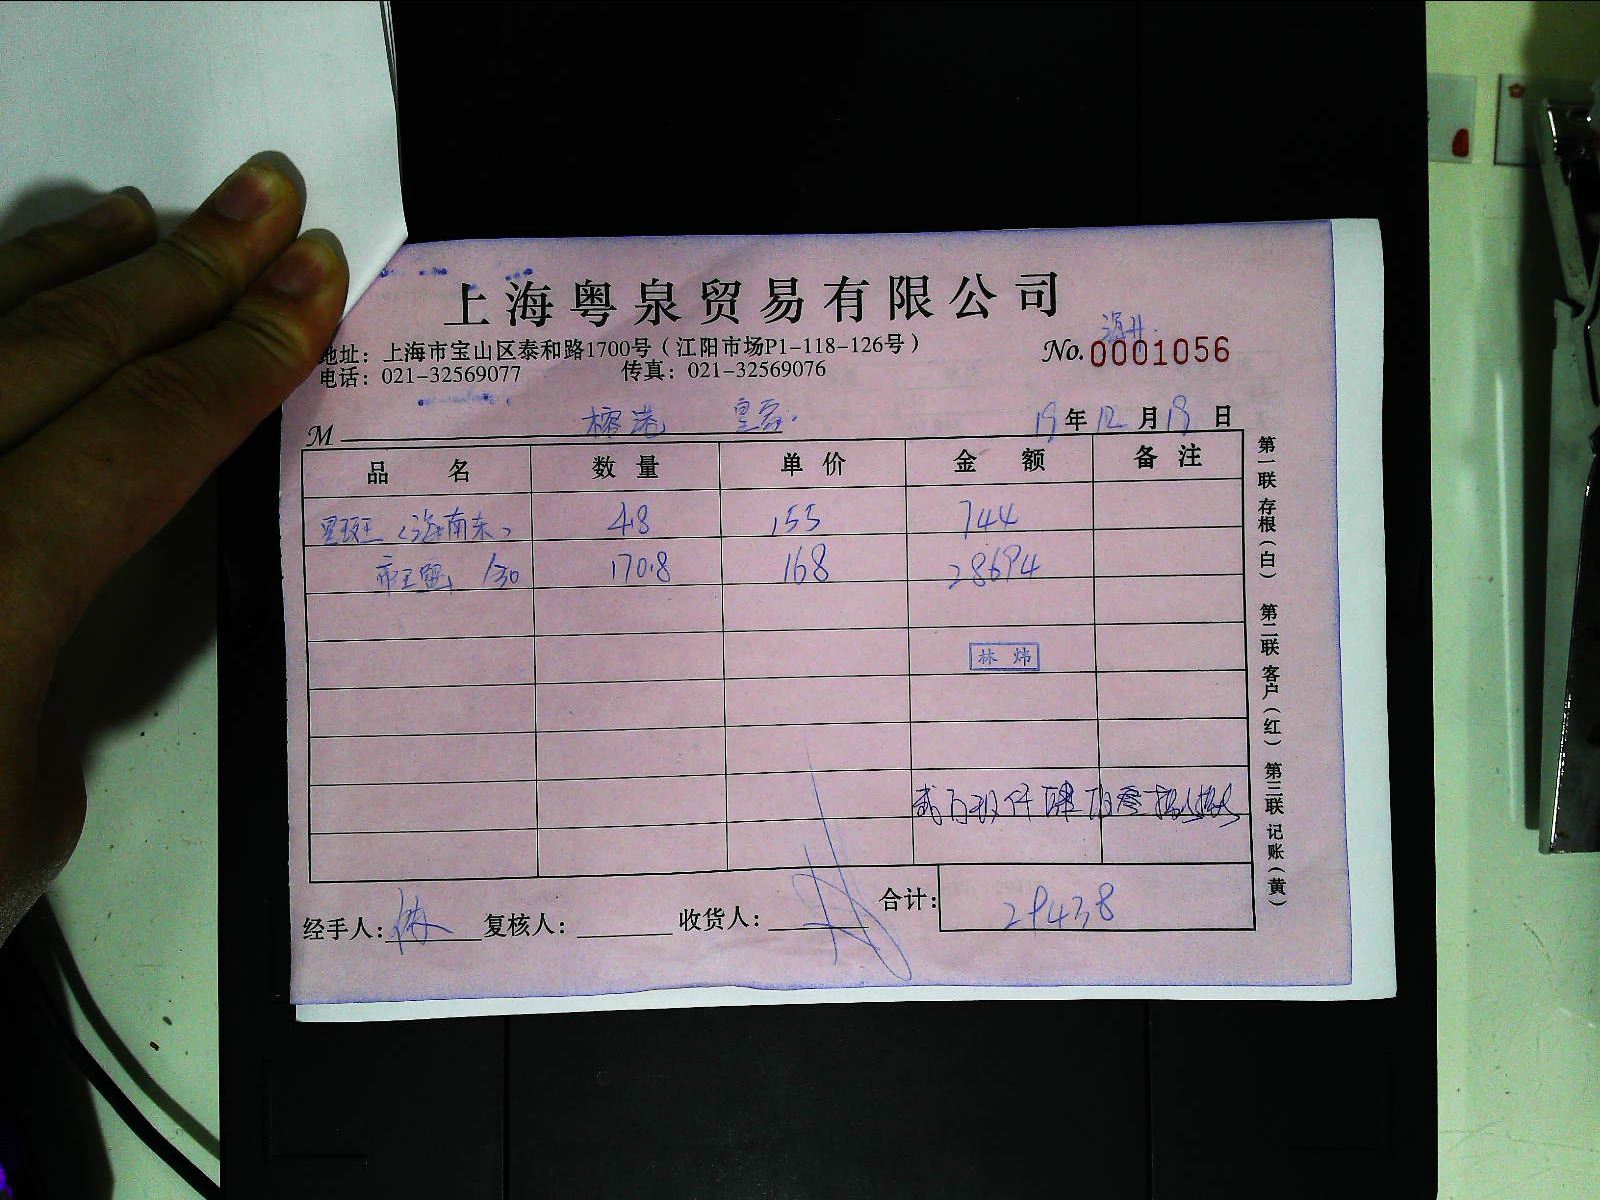 上海粤泉贸易有限公司
地址：上海市宝山区泰和路1700号（江阳市场P1-118-126号）
电话：021-32569077 传真：021-32569076
No.0001056
M 榕港
19年12月19日
品名 数量 单价 金额 备注
星斑王（海南东） 4.8 155 744
帝王蟹 /30 170.8 168 28694
林炜
合计：29438
经手人： 复核人： 收货人：
第一联存根（白） 第二联客户（红） 第三联记账（黄）